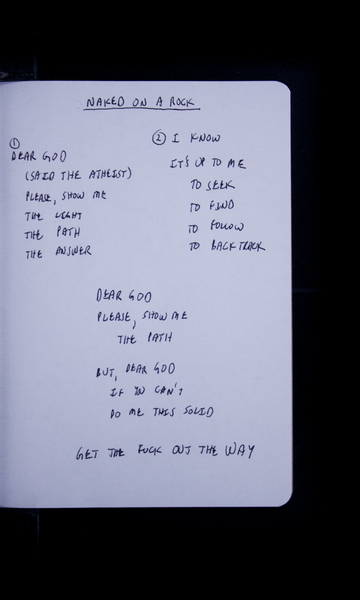 NAKED ON A ROCK
①
DEAR GOD
(SAID THE ATHEIST)
PLEASE, SHOW ME
THE LIGHT
THE PATH
THE ANSWER
② I KNOW
IT'S UP TO ME
TO SEEK
TO FIND
TO FOLLOW
TO BACKTRACK
DEAR GOD
PLEASE, SHOW ME
THE PATH
BUT, DEAR GOD
IF YOU CAN'T
DO ME THIS SOLID
GET THE FUCK OUT THE WAY